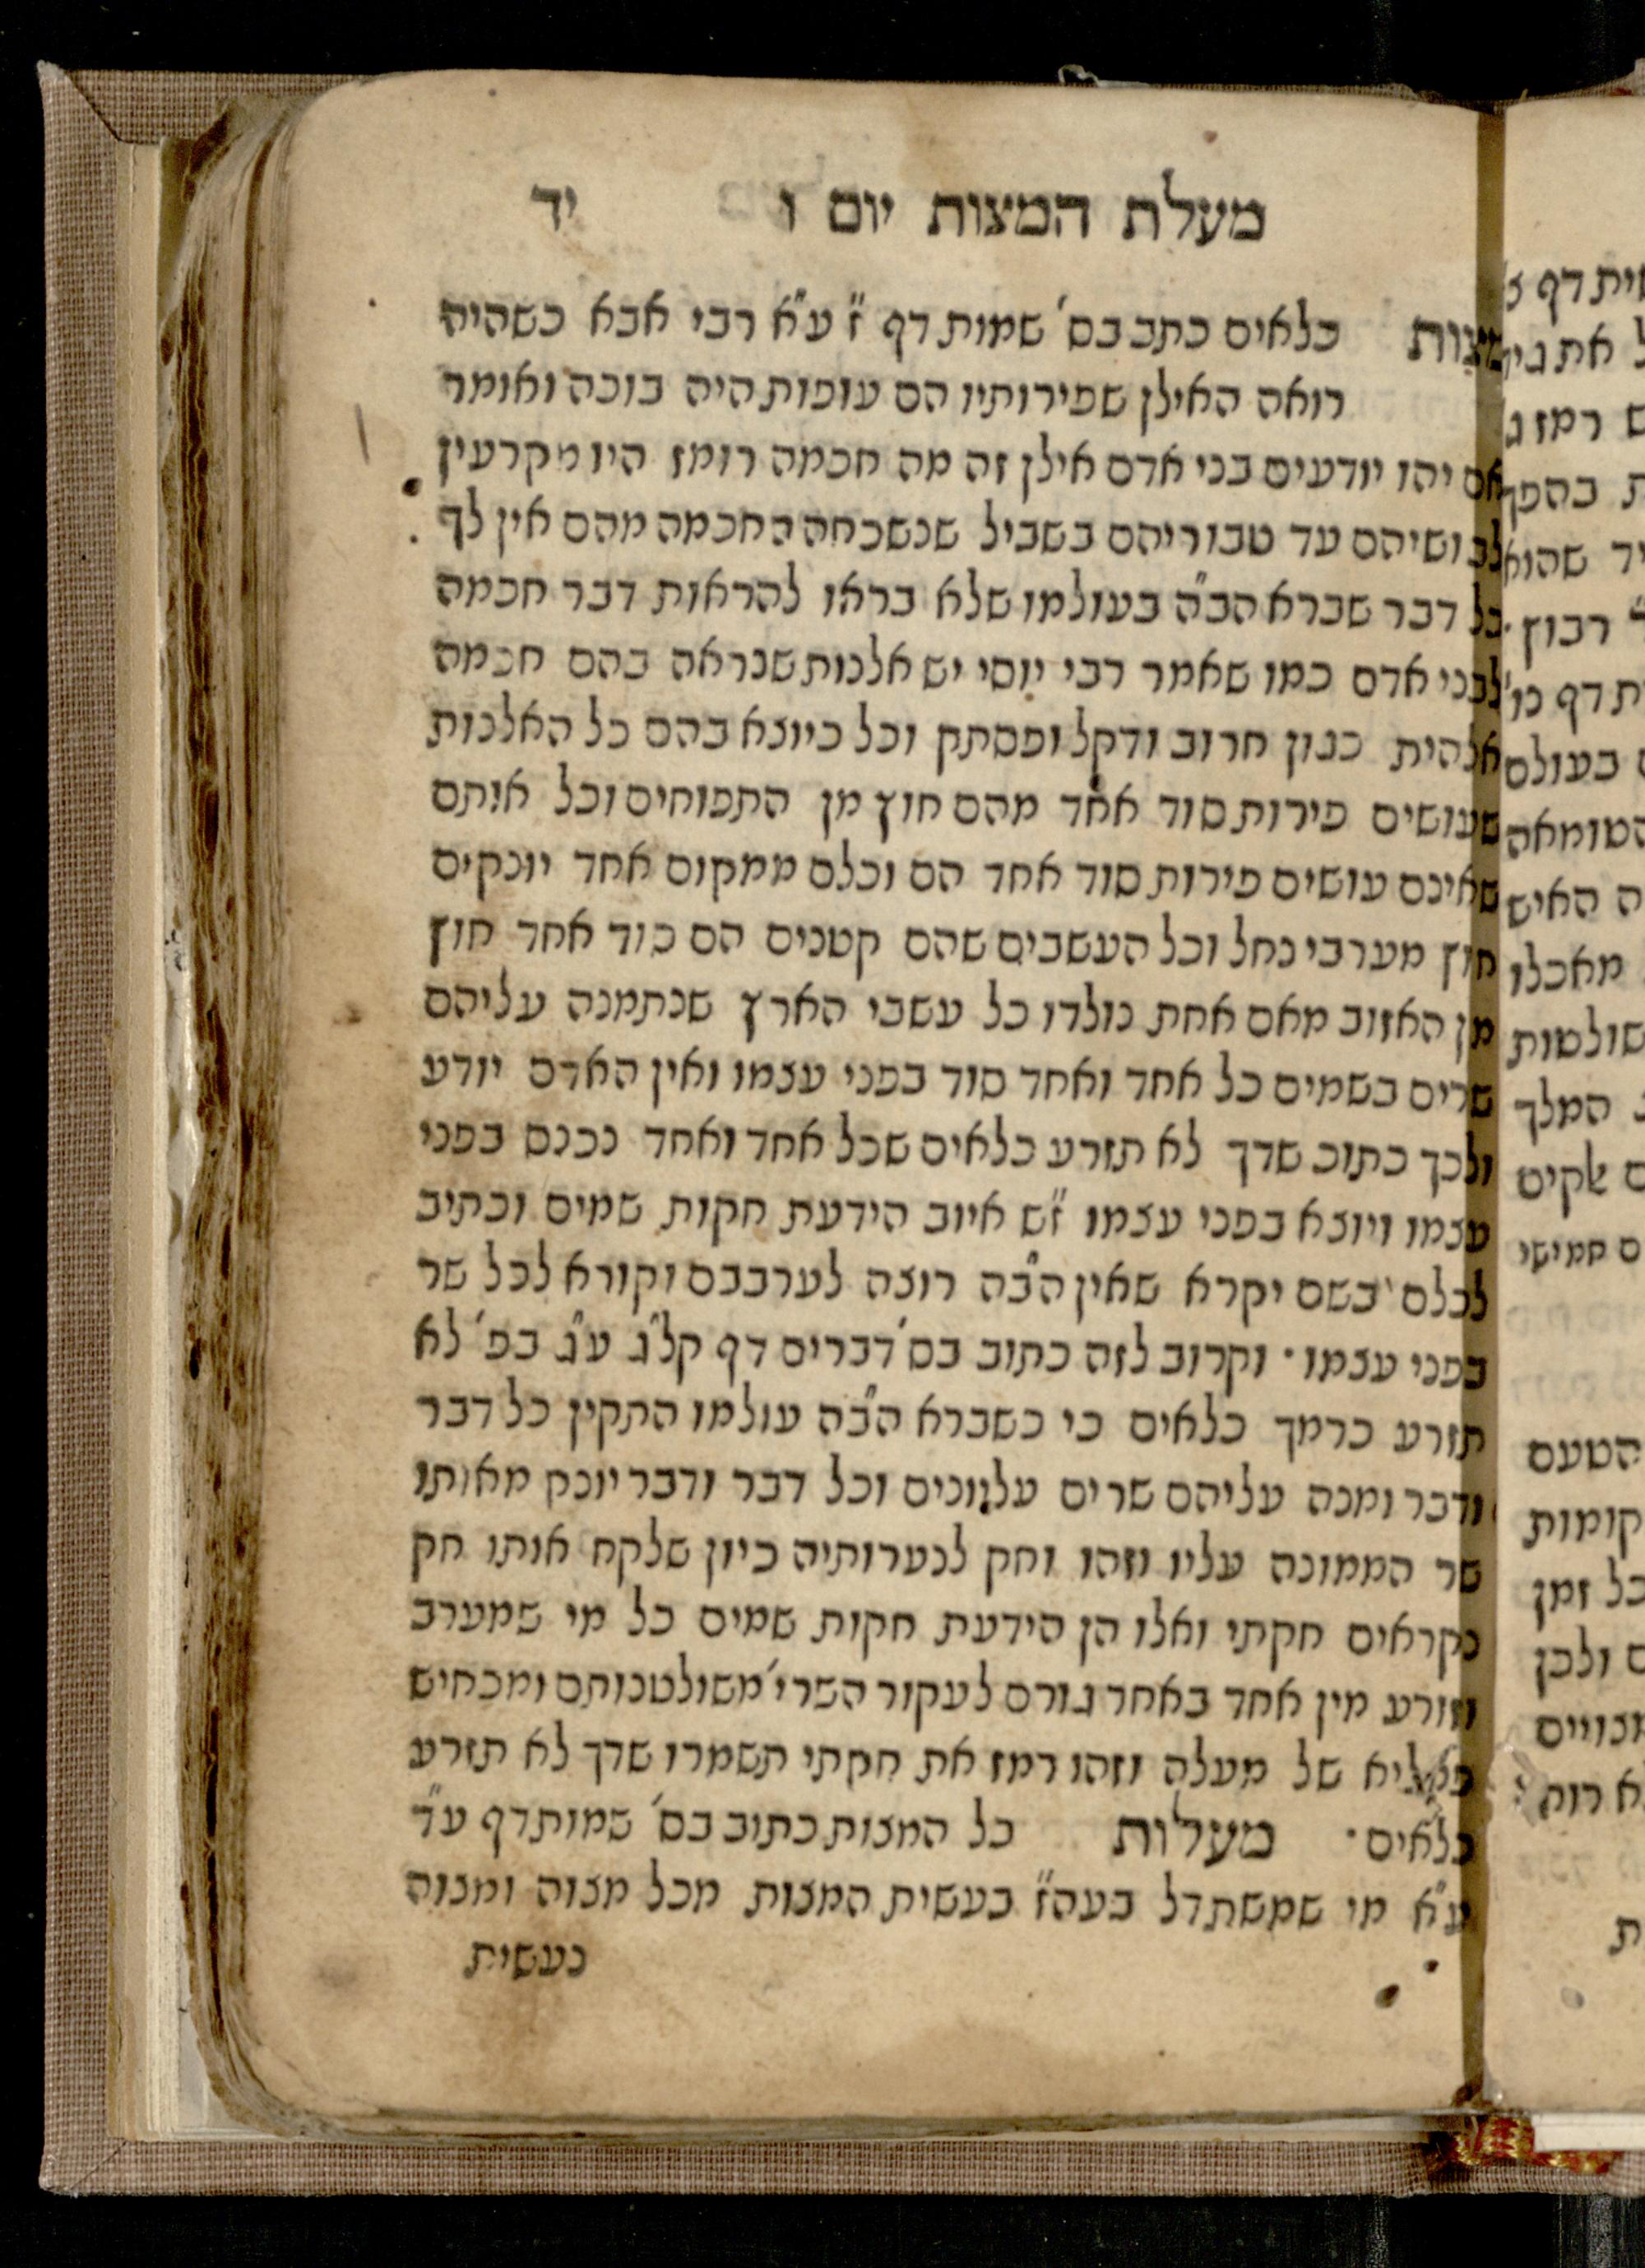 מעלת המצות יום ו יד
מצות כלאים כתב בס' שמות דף ז" ע"א רבי אבא כשהיה
רואה האילן שפירותיו הם עופות היה בוכה ואומר
אם יהו יודעים בני אדם אילן זה מה חכמה רומז היו מקרעין
לבושיהם עד טבוריהם בשביל שנשכחה החכמה מהם אין לך
כל דבר שברא הב"ה בעולמו שלא בראו להראות דבר חכמה
לבני אדם כמו שאמר רבי יוסי יש אלנות שנראה בהם חכמה
אלהית כגון חרוב ודקל ופסתק וכל כיוצא בהם כל האלנות
שעושים פירות סוד אחד מהם חוץ מן התפוחים וכל אותם
שאינם עושים פירות סוד אחד הם וכלם ממקום אחד יונקים
חוץ מערבי נחל וכל העשבים שהם קטנים הם סוד אחד חוץ
מן האזוב מאם אחת נולדו כל עשבי הארץ שנתמנה עליהם
שרים בשמים כל אחד ואחד סוד בפני עצמו ואין האדם יודע
ולכך כתוב שדך לא תזרע כלאים שכל אחד ואחד נכנס בפני
עצמו ויוצא בפני עצמו ז"ש איוב הידעת חקות שמים וכתיב
לכלם בשם יקרא שאין הב"ה רוצה לערבבם וקורא לכל שר
בפני עצמו · וקרוב לזה כתוב בס' דברים דף קל"ג ע"ג בפ' לא
תזרע כרמך כלאים כי כשברא הב"ה עולמו התקין כל דבר
ודבר ומנה עליהם שרים עליונים וכל דבר ודבר יונק מאותו
שר הממונה עליו וזהו וחק לנערותיה כיון שלקח אותו חק
נקראים חקתי ואלו הן הידעת חקות שמים כל מי שמערב
וזורע מין אחד באחר גורם לעקור השרי' משולטנותם ומכחיש
פמליא של מעלה וזהו רמז את חקתי תשמרו שדך לא תזרע
כלאים · מעלות כל המצות כתוב בס' שמות דף ע"ד
ע"א מי שמשתדל בעה"ז בעשית המצות מכל מצוה ומצוה
בעשית